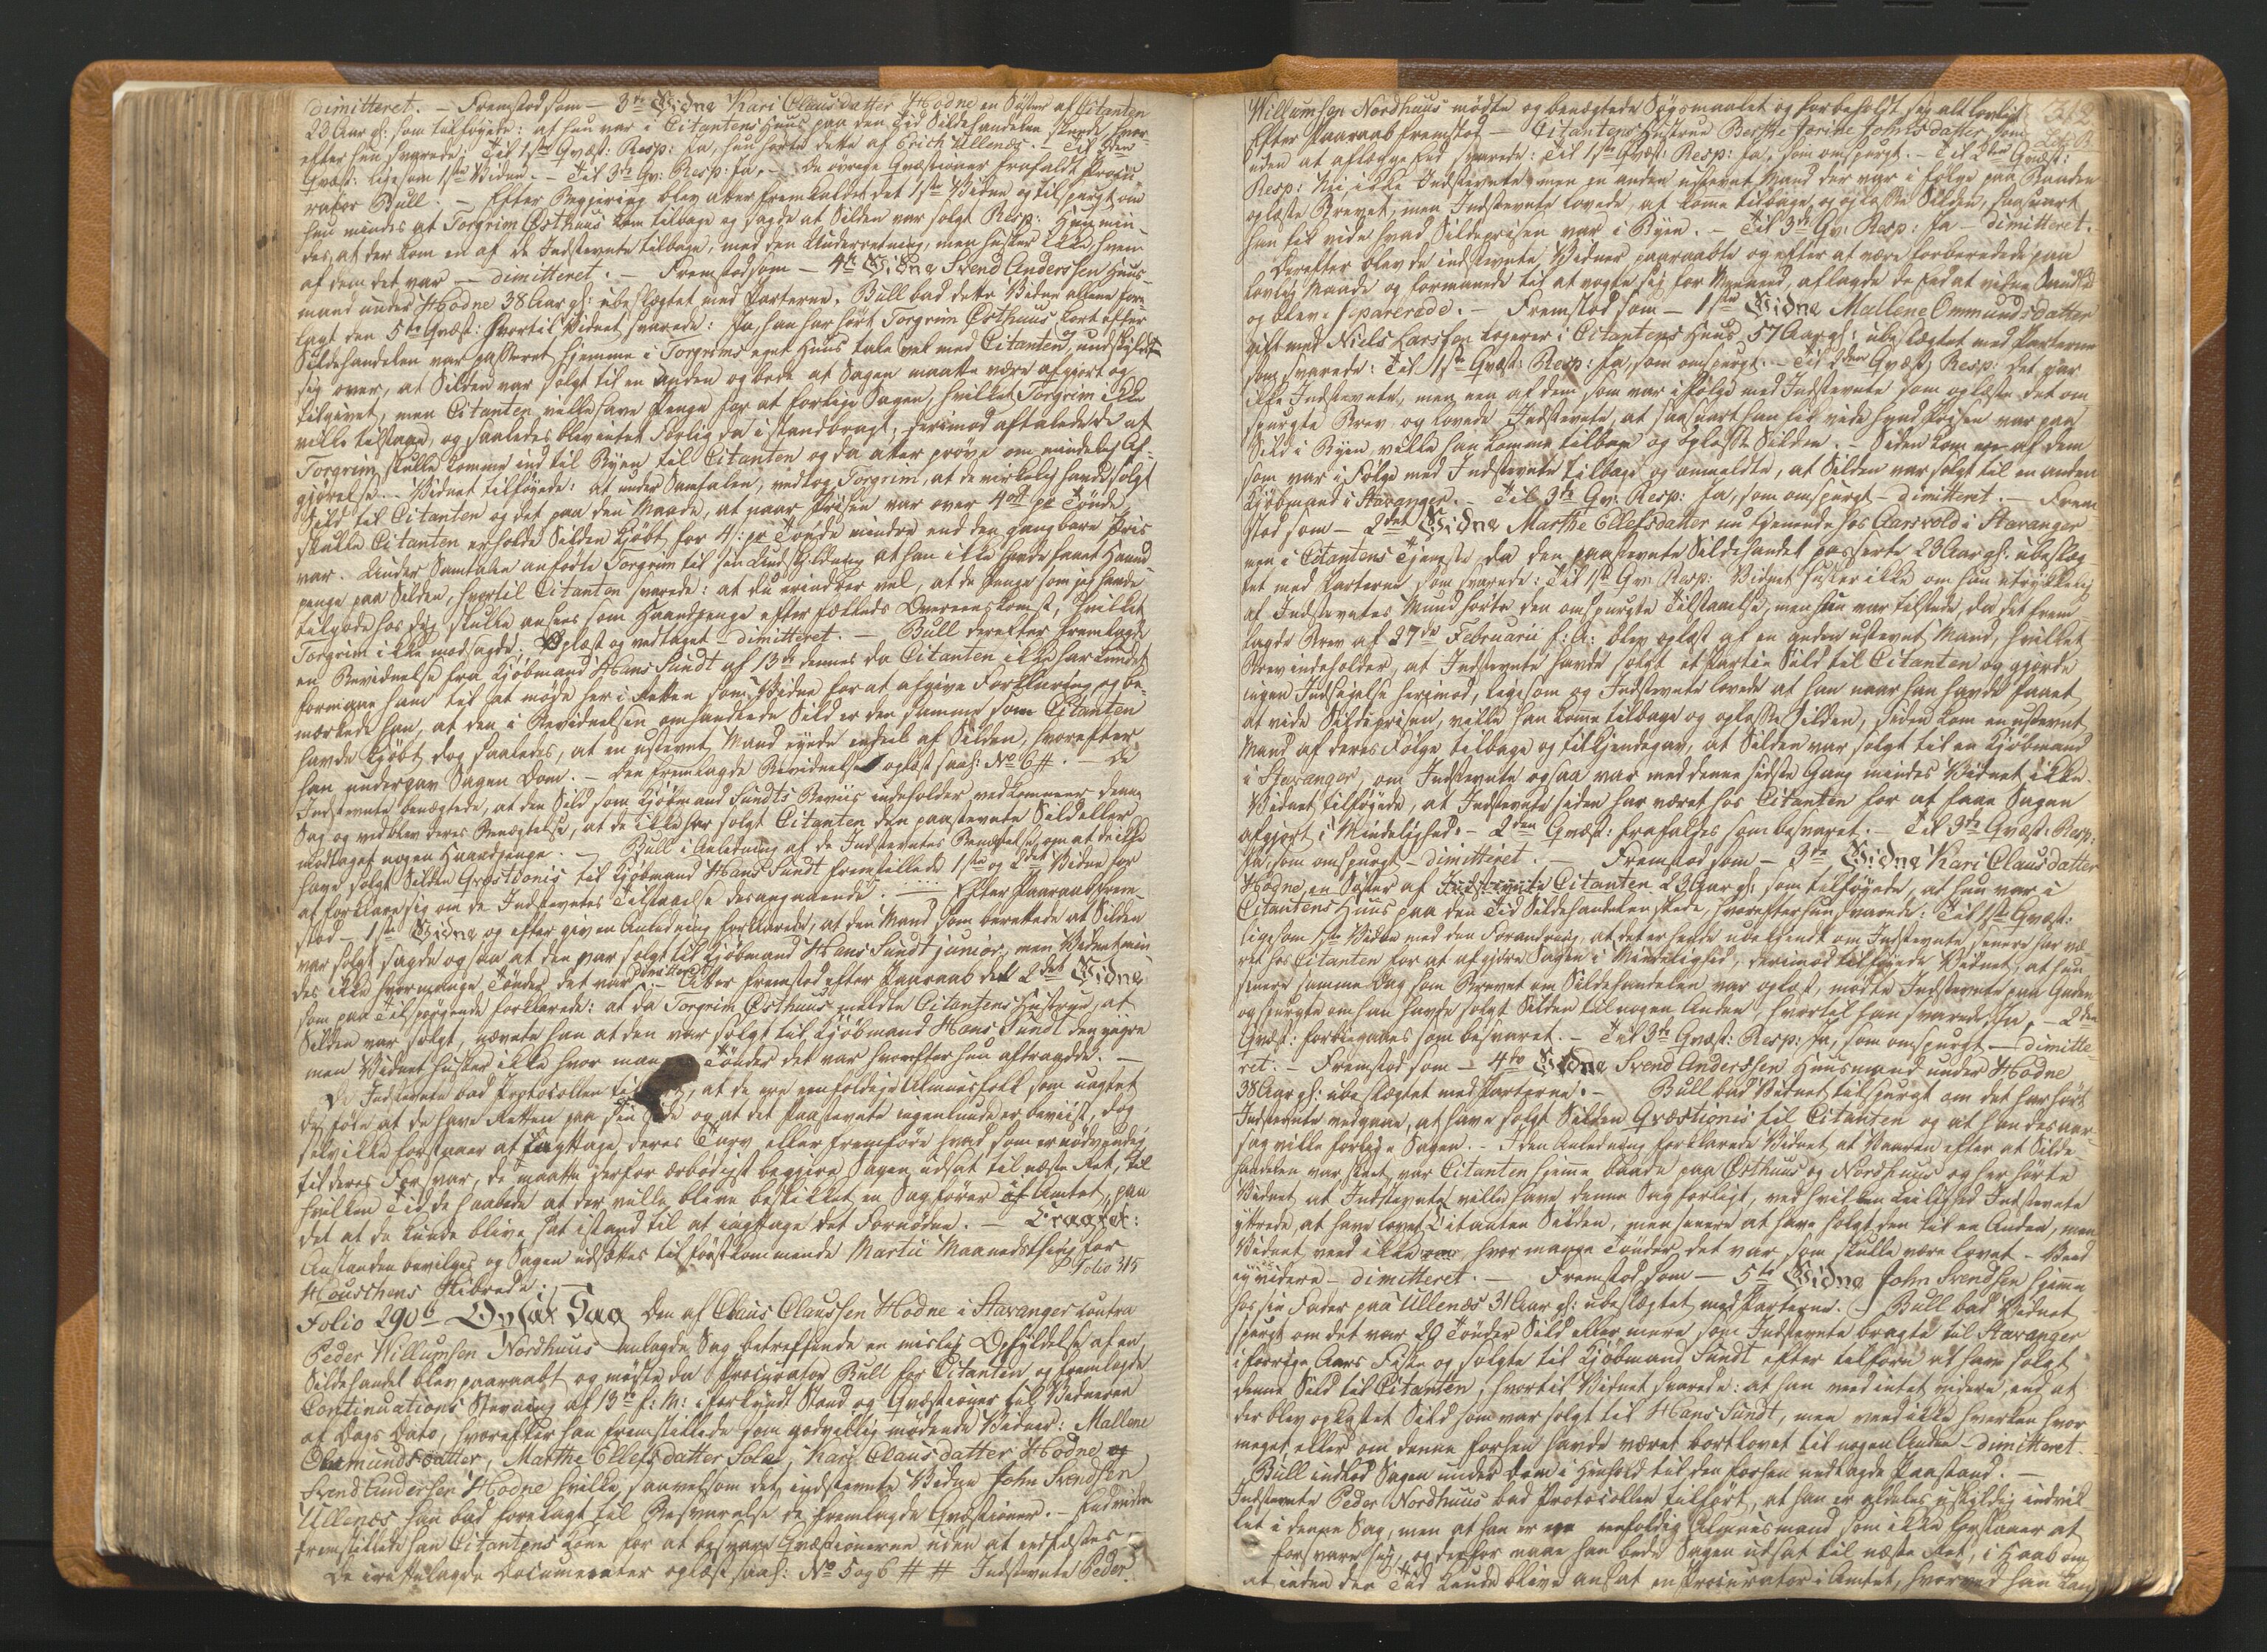 dimitteret. – Fremstod som – 3die Vidne Kari Clausdatter Hodne en Søster af Citanten
23 Aar gl: som tilføyede: at hun var i Citantens Huus paa den Tid Sildehandelen skeede, hvor-
efter hun svarede: Til 1ste Qvæst: Resp: Ja, hun hørte dette af Erich Ullenæs. – Til 2den
Qvæst: ligesom 1ste Vidne. – Til 3die Qv: Resp: Ja. – De øvrige Qvæstioner frafaldt Procu-
rator Bull. – Efter Begjering blev atter fremkaldet det 1ste Vidne og tilspurgt om
hun mindes at Torgrim Østhuus kom tilbage og sagde at Silden var solgt Resp: Hun min-
des, at der kom en af de Indstevnte tilbage, med den Underretning, men husker ikke hvem
af dem det var – dimitteret. – Fremstod som – 4de Vidne Svend Anderssen Huus-
mand under Hodne 38 Aar gl: ubeslægtet med Parterne. Bull bad dette Vidne allene fore-
lagt den 5te Qvæst: hvortil Vidnet svarede: Ja, han har hørt Torgrim Østhuus kort efter
Sildehandelen var passeret hjemme i Torgrims eget Huus tale vel med Citanten og undskyldte
sig over, at Silden var solgt til en Anden og bede at Sagen maatte være afgjort og
tilgivet, men Citanten ville have Penge for at forlige Sagen, hvilket Torgrim ikke
ville tilstaae, og saaledes blev intet Forlig da istandbragt, derimod aftalede de at
Torgrim skulle komme ind til Byen til Citanten og da atter prøve om mindelig Af-
gjørelse. – Vidnet tilføyede: at under Samtalen, vedtog Torgrim, at de virkelig havde solgt
Sild til Citanten og det paa den Maade, at naar Prisen var over 4 ort pr Tønde
skulle Citanten erholde Silden kjøbt for 4 s: pr Tønde mindre end den gangbare Pris
var. Under Samtalen anførte Torgrim til sin Undskyldning at han ikke havde faaet Haand-
penge paa Silden, hvortil Citanten svarede: at du erindrer vel, at de Penge som jeg havde
tilgode hos dig skulle ansees som Haandpenge efter fælleds Overeenskomst, hvilket
Torgrim ikke modsagde. Oplæst og vedtaget – dimitteret. – Bull derefter fremlagde
en Bevidnelse fra Kjøbmand Hans Sundt af 13de dennes da Citanten ikke har kundet
formaae ham til at møde her i Retten som Vidne for at afgive Forklaring og be-
mærkede han, at den i Bevidnelsen omhandlede Sild er den samme som Citanten
havde kjøbt dog saaledes, at en ustevnt Mand eyede endeel af Silden, hvorefter
han undergav Sagen Dom. – Den fremlagde Bevidnelse oplæst saal: No 6 #. – De
Indstevnte benægtede, at den Sild som Kjøbmand Sundts Beviis indeholder vedkommer denne
Sag og vedblev deres Benægtelse, at de ikke har solgt Citanten den paastevnte Sild eller
modtaget nogen Haandpenge. – Bull i Anledning af de Indstevntes Benægtelse, om at de ikke
have solgt Silden Qvæstionis til Kjøbmand Hans Sundt fremstillede 1ste og 2det Vidne for
at forklare sig om de Indstevntes Tilstaaelse desangaaende. – Efter Paaraab frem-
stod – 1ste Vidne og efter given Anledning forklarede, at den Mand som berettede at Silden
var solgt sagde ogsaa at den var solgt til Kjøbmand Hans Sundt junior, men Vidnet min-
des ikke hvormange Tønder det var dimitteret. – Atter fremstod efter Paaraab det 2det Vidne
som paa Tilspørgende forklarede: at da Torgrim Østhuus meldte Citantens Hustrue, at
Silden var solgt, nævnte han at den var solgt til Kjøbmand Hans Sundt den yngre
men Vidnet husker ikke hvor mange Tønder det var hvorefter hun aftraadde. –
De Indstevnte bad Protocollen, at de ere eenfoldige Almuesfolk som uagtet
de føle at de have Retten paa sin Side og at det Paastevnte ingenlunde er beviist, dog
selv ikke forstaaer at iagttage deres Tarv eller fremføre hvad som er nødvendig
til deres Forsvar, de maatte derfor ærbødigst begjere Sagen udsat til næste Ret, til
hvilken Tid de haabede at der ville blive beskikket en Sagfører af Amtet, paa
det at de kunde blive sat istand til at iagttage det Fornødne. – Eragtet:
Anstanden bevilges og Sagen udsættes til førstkommende Martii Maaneds Thing for
Houschens Skibrede. – Folio 315
Folio 290b Opsat Sag den af Claus Claussen Hodne i Stavanger contra
Peder Willumsen Nordhuus anlagde Sag betreffende en mislig Opfyldelse af en
Sildehandel blev paaraabt og mødte da Procurator Bull for Citanten og fremlagde
Continuations Stevning af 13de f: M: i forkyndt Stand og Qvæstioner til Vidnerne
af Dags Dato, hvorefter han fremstillede som godvillig mødende Vidner: Mallene
Ommundsdatter, Marthe Ellefsdatter Sola, Kari Clausdatter Hodne og
Svend Anderssen Hodne hvilke saavelsom det indstevnte Vidne John Svendsen
Ullenæs han bad forelagt til Besvarelse de fremlagde Qvæstioner. – Endvidere
fremstillede han Citantens Kone for at besvare Qvæstionerne uden at eedfæstes. –
De irettelagde Documenter oplæst saal: No 5 og 6 # # Indstevnte Peder
312
Willumsen Nordhuus mødte og benægtede Søgsmaalet og forbeholdt sig alt lovligt
Efter Paaraab fremstod – Citantens Hustrue Berthe Jorine Johnsdatter, som
uden at aflægge Eed svarede: Til 1ste Qvæst: Resp: Ja, som omspurgt. – Til 2den Qvæst:
Resp: Nei ikke Indstevnte men en anden ustevnt Mand der var i følge paa Baaden
oplæste Brevet, men Indstevnte lovede, at kome tilbage og oplosse Silden, saasnart
han fik vide hvad Sildeprisen var i Byen. – Til 3die Qv: Resp: Ja – dimitteret.
Derefter blev de indstevnte Vidner paaraabte og efter at være forberedede paa
lovlig Maade og formanede til at vogte sig for Meeneed, aflagde de Eed at vidne Sandhed
og bleve separerede. – Fremstod som – 1ste Vidne Mallene Ommundsdatter
gift med Niels Larssen logerer i Citantens Huus 57 Aar gl: ubeslægtet med Parterne
som svarede: Til 1ste Qvæst: Resp: Ja, som omspurgt. – Til 2den Qvæst: Resp: det var
ikke Indstevnte, men een af dem som var i Følge med Indstevnte som oplæste det om
spurgte Brev og lovede Indstevnte, at saasnart han fik vide hvad Prisen var paa
Sild i Byen ville han komme tilbage og oplosse Silden. – Siden kom een af dem
som var i Følge med Indstevnte tilbage og anmeldte, at Silden var solgt til en anden
Kjøbmand i Stavanger. – Til 3die Qv: Resp: Ja, som omspurgt – dimitteret. – Frem
stod som – 2det Vidne Marthe Ellefsdatter nu tjenende hos Aarsvold i Stavanger
men i Citantens Tjeneste da den paastevnte Sildehandel passerte 23 Aar gl: ubeslæg-
tet med Parterne, som svarede: Til 1ste Qv: Resp: Vidnet husker ikke om hun udtrykkelig
af Indstevntes Mund hørte den omspurgte Tilstaaelse, men hun var tilstede, da det frem-
lagde Brev af 27de Februarii f: A: blev oplæst af en anden ustevnt Mand, hvilket
Brev indeholder, at Indstevnte havde solgt et Partie Sild til Citanten og gjorde
ingen Indsigelse herimod, ligesom og Indstevnte lovede at han naar han havde faaet
at vide Sildeprisen, ville han kome tilbage og oplosse Silden, siden kom en ustevnt
Mand af deres Følge tilbage og tilkjendegav, at Silden var solgt til en Kjøbmand
i Stavanger, om Indstevnte ogsaa var med denne sidste Gang mindes Vidnet ikke.
Vidnet tilføyede, at Indstevnte siden har været hos Citanten for at faae Sagen
afgjort i Mindelighed. – 2den Qvæst: frafaldes som besvaret. – Til 3die Qvæst: Resp:
Ja, som omspurgt – dimitteret. – Fremstod som – 3die Vidne Kari Clausdatter
Hodne, en Søster af Citanten 23 Aar gl: som tilføyede, at hun var i
Citantens Huus paa den Tid Sildehandelen skede, hvorefter hun svarede: Til 1ste Qvæst:
ligesom 1ste Vidne med den Forandring, at det er hende ubekjendt om Indstevnte senere har væ-
ret hos Citanten for at afgjøre Sagen i Mindelighed, derimod tilføyede Vidnet, at hun
senere samme Dag som Brevet om Sildehandelen var oplæst, mødte Indstevnte paa Gaden
og spurgte om han havde solgt Silden til nogen Anden, hvortil han svarede Ja. – 2den
Qvæst: forbigaaes som besvaret. – Til 3die Qvæst: Resp: Ja, som omspurgt – dimitte-
ret. – Fremstod som – 4de Vidne Svend Anderssen Huusmand under Hodne
38 Aar gl: ubeslægtet med Parterne. – Bull bad Vidnet tilspurgt om det har hørt
Indstevnte vedgaae, at have solgt Silden Qvæstionis til Citanten og at han desaar-
sag ville forlige Sagen. – I den Anledning forklarede Vidnet at Vaaren efter at Silde-
handelen var skeet, var Citanten hjeme baade paa Østhuus og Nordhuus og her hørte
Vidnet at Indstevnte ville have denne Sag forligt, ved hvilken Leilighed Indstevnte
yttrede, at have lovet Citanten Silden, men senere at have solgt den til en Anden, men
Vidnet veed ikke hvor mange Tønder det var som skulle være lovet – Veed
ey videre – dimitteret. – Fremstod som – 5te Vidne John Svendsen hjeme
hos sin Fader paa Ullenæs 31 Aar gl: ubeslægtet med Parterne. – Bull bad Vidnet
spurgt om det var 29 Tønder Sild eller mere som Indstevnte bragte til Stavanger
i forrige Aars Fiske og solgte til Kjøbmand Sundt efter tilforn at have solgt
denne Sild til Citanten, hvortil Vidnet svarede: at han veed intet videre, end at
der blev opkastet Sild som var solgt til Hans Sundt, men veed ikke hverken hvor
meget eller om denne forhen havde været bortlovet til nogen Anden – dimitteret.
Bull indlod Sagen under Dom i Henhold til den forhen nedlagde Paastand. –
Indstevnte Peder Nordhuus bad Protocollen tilført, at han er aldeles uskyldig indvik-
let i denne Sag, men at han er en eenfoldig Almuesmand som ikke forstaaer at
forsvare sig, og derfor maae han bede Sagen udsat til næste Ret, i Haab om
at inden den Tid kunde blive ansat en Procurator i Amtet, hvorved han kan